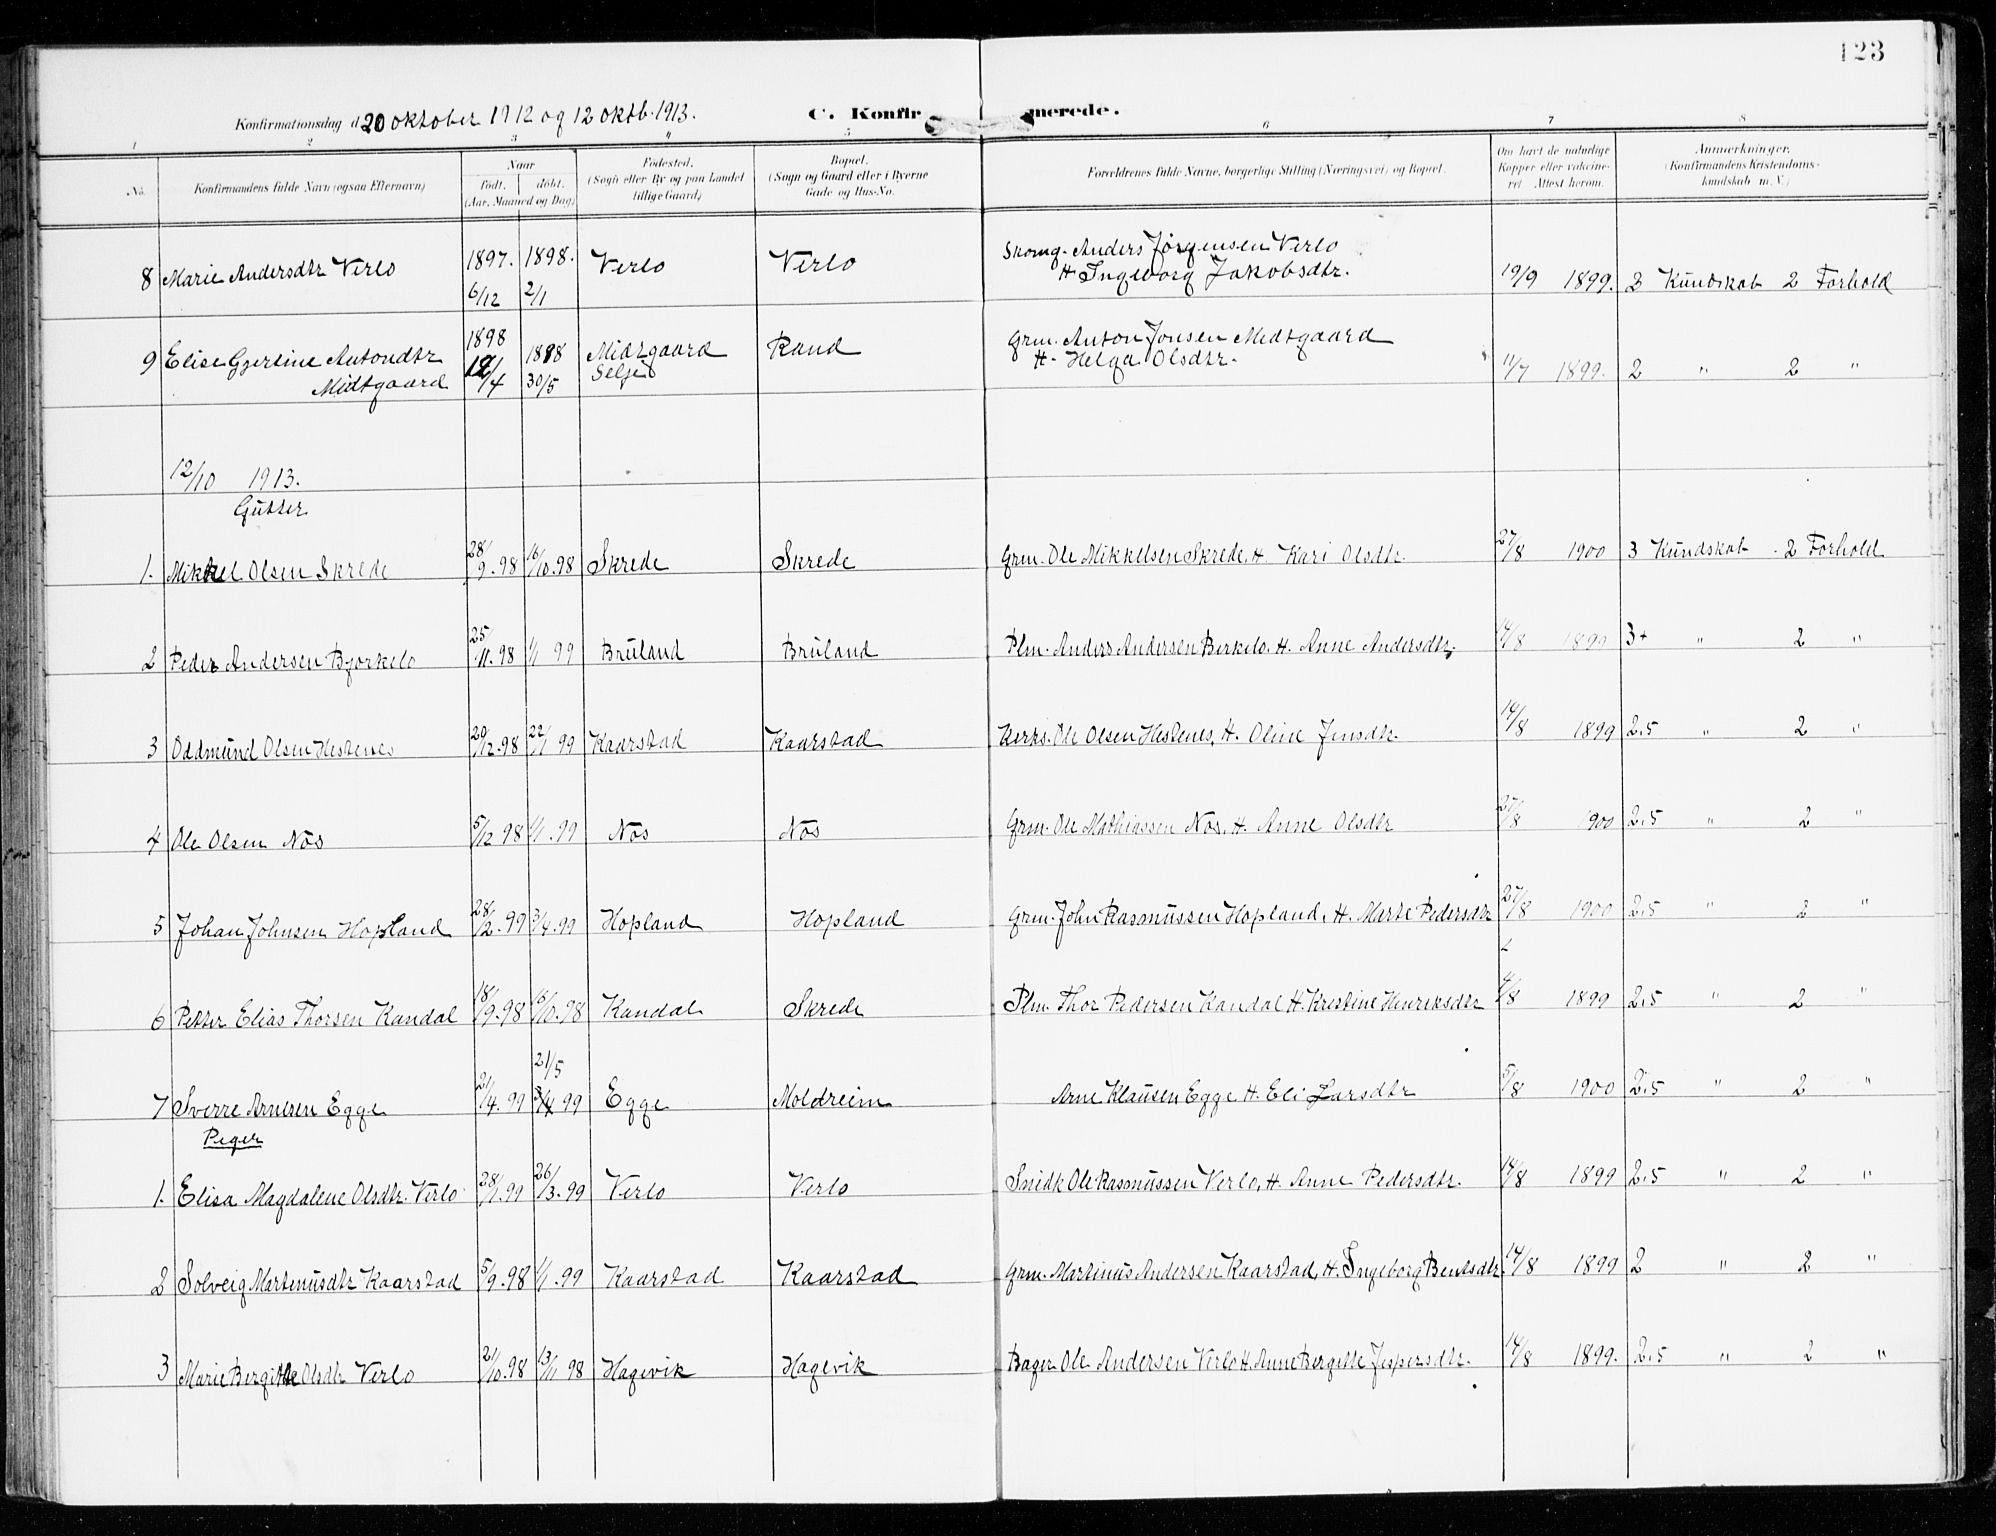 123
Konfirmationsdag d. 20 oktober 1912 og 12 oktb. 1913. C. Konfirmerede.
1 2 3 4 5 6 7 8
No. Konfirmandens fulde Navn (ogsaa Efternavn) Naar født. døbt. (Aar, Maaned og Dag) Fødested. (Sogn eller By og paa Landet tillige Gaard) Bopæl. (Sogn og Gaard eller i Byerne Gade og Hus-No. Forældrenes fulde Navne, borgerlige Stilling (Næringsvei) og Bopæl. Om havt de naturlige Kopper eller vakcineret. Attest herom. Anmærkninger. (Konfirmandens Kristendomskundskab m. V.)
8 Marie Andersdtr Verlo 1897. 6/12 1898. 2/1 Verlo Verlo Skomg. Anders Jørgensen Verlo
H Ingeborg Jakobsdtr. 19/9 1899. 2 Kundskab 2 Forhold
9 Elise Gjertine Antondtr Midtgaard 1898 12/4 1898 30/5 Midtgaard Selje Rand Grm. Anton Jonsen Midtgaard
H. Helga Olsdtr. 11/7 1899. 2 " 2 "
12/10 1913.
Gutter
1. Mikkel Olsen Skrede 28/9.98 16/10.98 Skrede Skrede Grm. Ole Mikkelsen Skrede, H. Kari Olsdtr. 27/8 1900 3 Kundskab 2 Forhold
2 Peder Andersen Bjorkelo 25/11.98 1/1 99 Bruland Bruland Plm. Anders Andersen Berkelo. H. Anne Andersdtr. 14/8 1899 3+ " 2 "
3 Oddmund Olsen Hestenes 20/12.98 22/1 99 Kaarstad Kaarstad Kirks. Ole Olsen Hestenes, H. Oline Jensdtr. 14/8 1899 2.5 " 2 "
4 Ole Olsen Nos 5/12 98 1/1.99 Nos Nos Grm. Ole Mathiassen Nos, H. Anne Olsdtr 27/8 1900 2.5 " 2 "
5 Johan Johnsen Hopland 28/2.99 3/4.99 Hopland Hopland Grm. John Rasmussen Hopland, H. Marte Pedersdtr 27/8 1900 2.5 " 2 "
6 Petter Elias Thorsen Kandal 18/9.98 16/10.98 Kandal Skrede Plm. Thor Pedersen Kandal H. Kristine Henriksdtr 4/8 1899 2.5 " 2 "
7 Sverre Arnesen Egge 21/4.99 21/5 99 Egge Moldreim Arne Klausen Egge H. Eli Larsdtr 5/8 1900 2.5 " 2 "
Peger
1. Elisa Magdalene Olsdtr. Verlo 28/1.99 26/3.99 Verlo Verlo Snidk Ole Rasmussen Verlo, H. Anne Pedersdtr. 14/8 1899 2.5 " 2 "
2 Solveig Martinusdtr Kaarstad 5/9.98 1/1.99 Kaarstad Kaarstad Grm. Martinus Andersen Kaarstad, H. Ingeborg Bentsdtr. 14/8 1899 2 " 2 "
3 Marie Bergitte Olsdtr Verlo 21/10.98 13/11 98 Hagevik Hagevik Bager Ole Andersen Verlo H. Anne Bergitte Jespersdtr. 14/8 1899. 2.5 " 2 "